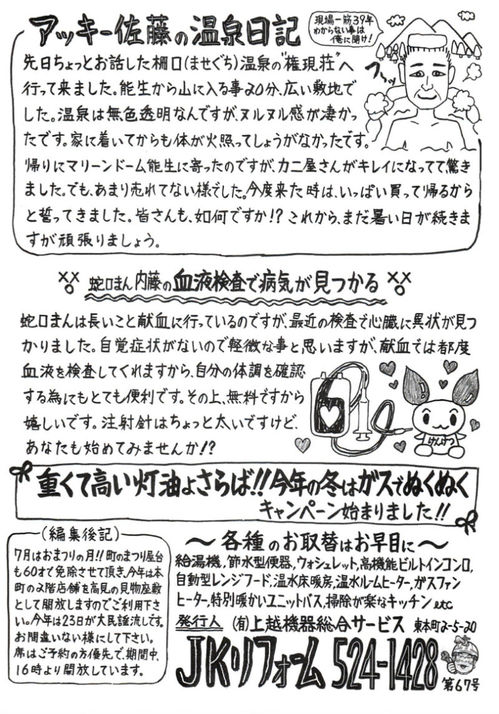 アッキー佐藤の温泉日記
現場一筋39年
わからない事は
俺に聞け!
先日ちょっとお話した柵口(ませぐち)温泉の"権現荘"へ
行って来ました。能生から山に入る事20分、広い敷地で
した。温泉は無色透明なんですが、ヌルヌル感が凄かっ
たです。家に着いてからも体が火照ってしょうがなかったです。
帰りにマリーンドーム能生に寄ったのですが、カニ屋さんがキレイになってて驚き
ました。でも、あまり売れてない様でした。今度来た時は、いっぱい買って帰るから
と誓ってきました。皆さんも、如何ですか!? これから、まだ暑い日が続きま
すが頑張りましょう。
フ〜ッ
蛇口まん内藤の血液検査で病気が見つかる
蛇口まんは長いこと献血に行っているのですが、最近の検査で心臓に異状が見つ
かりました。自覚症状がないので軽微な事と思いますが、献血では都度
血液を検査してくれますから、自分の体調を確認
する為にもとても便利です。その上、無料ですから
嬉しいです。注射針はちょっと太いですけど、
あなたも始めてみませんか!?
けんけつ
重くて高い灯油よさらば!!今年の冬はガスでぬくぬく
キャンペーン始まりました!!
(編集後記)
7月はおまつりの月!! 町のまつり屋台
も60才で免除させて頂き、今年は本
町の2階店舗を高見の見物座敷
として開放しますのでご利用下さ
い。今年は23日が大民謡流しです。
お間違いない様にして下さい。
席はご予約の方優先で、期間中、
16時より開放しています。
〜各種のお取替はお早目に〜
給湯機,節水型便器,ウォシュレット,高機能ビルトインコンロ,
自動型レンジフード,温水床暖房,温水ルームヒーター,ガスファン
ヒーター,特別暖かいユニットバス,掃除が楽なキッチン etc
発行人 (有)上越機器総合サービス 東本町2-5-20
JKリフォーム 524-1428
第67号